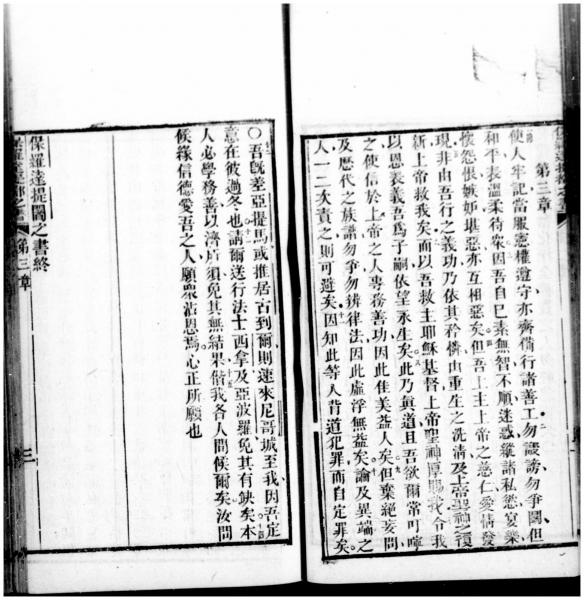 第三章
使人牢記當服憲權遵守亦齊備行諸善工勿謗讟勿爭鬭但
和平表溫柔待眾因吾自己素無智不順迷惑縱諸私慾宴樂
懷怨恨嫉妒堪惡亦互相惡矣但吾上主上帝之慈仁愛情發
現非由吾行之義功乃依其矜憐由重生之洗清及上帝聖神之復
新上帝救我矣而以吾救主耶穌基督上帝聖神厚賜我令我
以恩表義吾為子嗣依望永生矣此乃眞道且吾欲爾常叮嚀
之使信於上帝之人專務善功因此佳美益人矣但棄絕妄問
及歷代之族譜勿爭勿辨律法因此虛浮無益矣論及異端之
人一二次責之則可避矣因知此等人背道犯罪而自定罪矣
○吾既差亞提馬或推居古到爾則速來尼哥城至我因吾定
意在彼過冬也請爾送行法士西拿及亞波羅免其有缺矣本
人必學務善以濟所須免其無結果偕我各人問候爾矣汝問
候緣信德愛吾之人願眾沾恩焉心正所願也
保羅達提多之書終
第三章
三